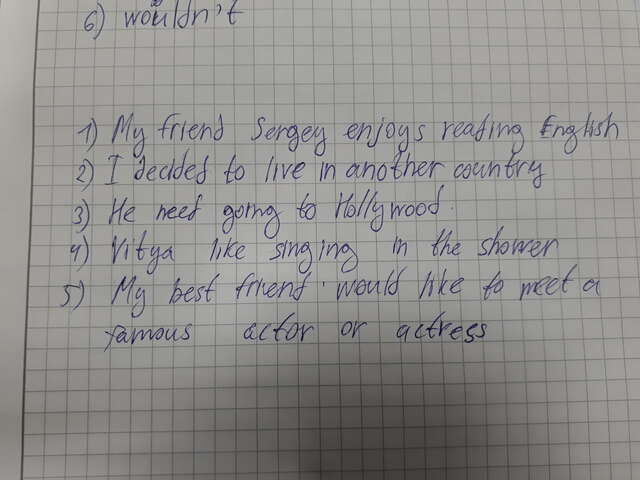 6) wouldn't
1) My friend Sergey enjoys reading English
2) I decided to live in another country
3) He need going to Hollywood.
4) Vitya like singing in the shower
5) My best friend would like to meet a
famous actor or actress